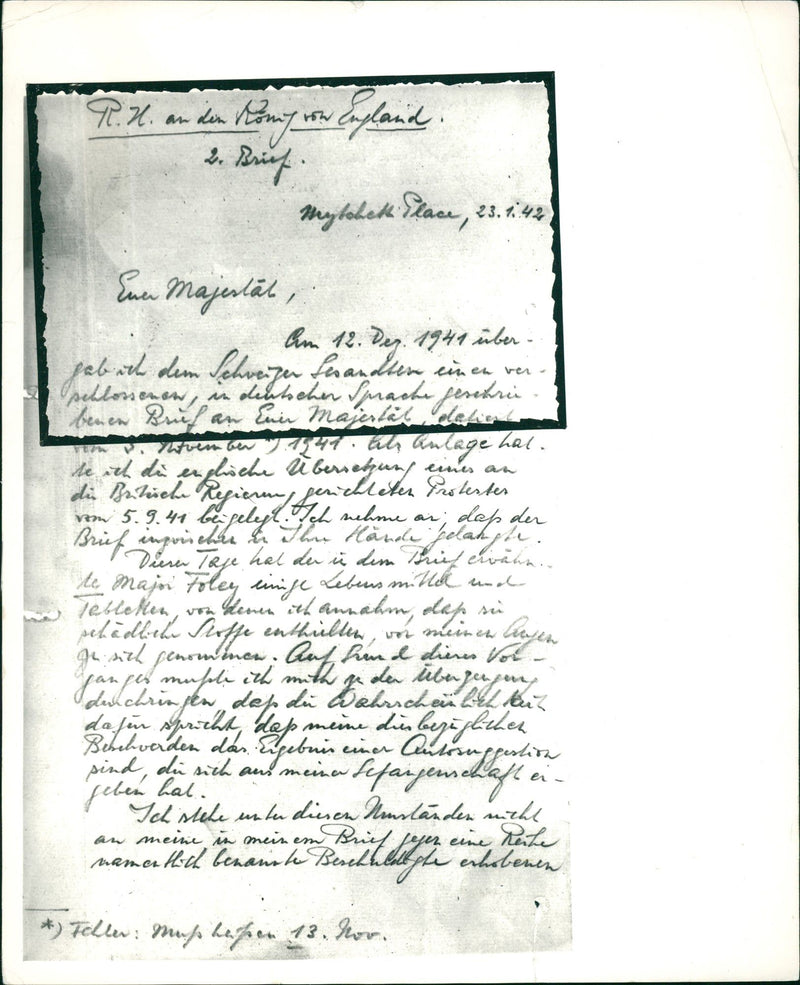 R. H. an den König von England.
2. Brief.
Mytchett Place, 23.1.42
Euer Majestät,
Am 12. Dez. 1941 über-
gab ich dem Schweizer Gesandten einen ver-
schlossenen, in deutscher Sprache geschrie-
benen Brief an Euer Majestät, datiert
vom 3. November *) 1941. Als Anlage hat-
te ich die englische Übersetzung eines an
die Britische Regierung gerichteten Protestes
vom 5.9.41 beigelegt. Ich nehme an, daß der
Brief inzwischen in Ihre Hände gelangte.
Dieser Tage hat der in dem Brief erwähn-
te Major Foley einige Lebensmittel und
Tabletten, von denen ich annahm, daß sie
schädliche Stoffe enthielten, vor meinen Augen
zu sich genommen. Auf Grund dieses Vor-
ganges mußte ich mich zu der Überzeugung
durchringen, daß die Wahrscheinlichkeit
dafür spricht, daß meine diesbezüglichen
Beschwerden das Ergebnis einer Autosuggestion
sind, die sich aus meiner Gefangenschaft er-
geben hat.
Ich stehe unter diesen Umständen nicht
an meine in meinem Brief gegen eine Reihe
namentlich benannte Beschuldigte erhobenen
*) Fehler: Muß heißen 13. Nov.